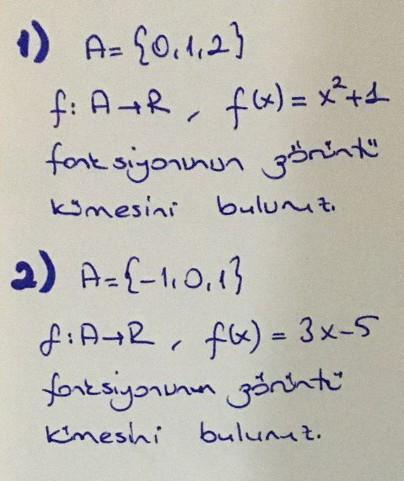 1) A = {0,1,2}
f: A→R, f(x) = x²+1
fonksiyonunun görüntü
kümesini bulunuz.
2) A={-1,0,1}
f:A→R, f(x) = 3x-5
fonksiyonunun görüntü
kümesini bulunuz.